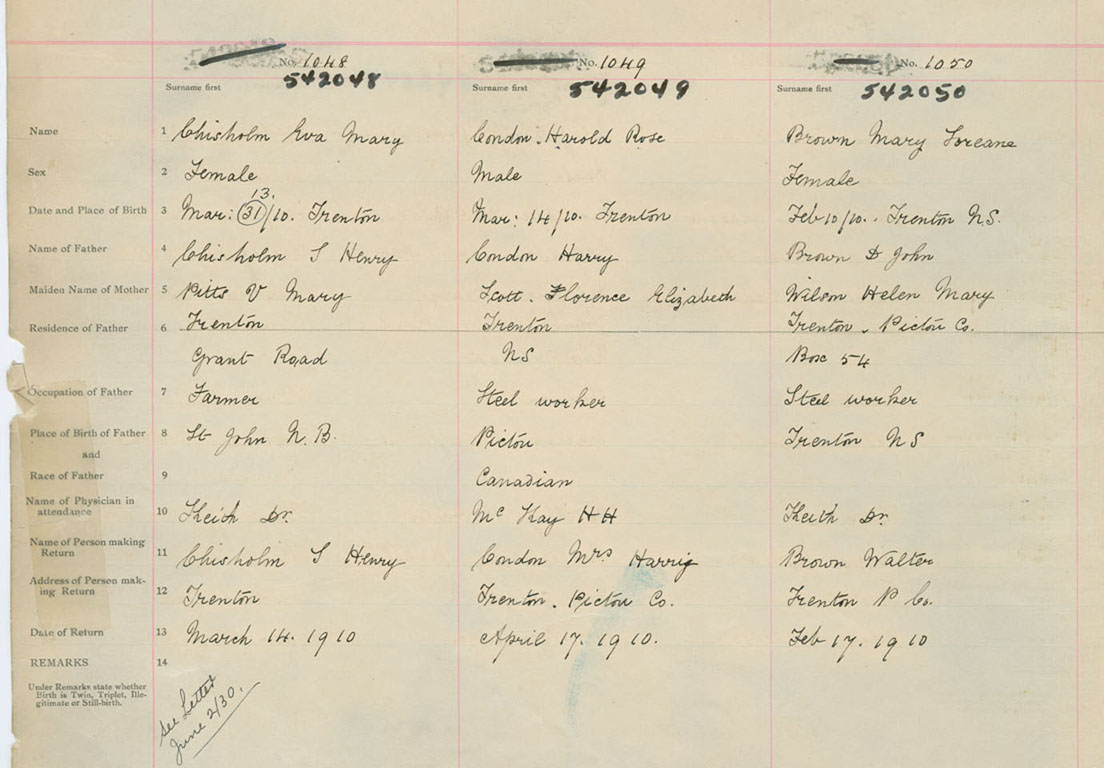 No. 1048 No. 1049 No. 1050
542048 542049 542050
Surname first Surname first Surname first
Name 1 Chisholm Eva Mary Condon. Harold Rose Brown Mary Loreane
Sex 2 Female Male Female
13.
Date and Place of Birth 3 Mar: 31/10. Trenton Mar: 14/10. Trenton Feb 10/10. Trenton N.S.
Name of Father 4 Chisholm S Henry Condon Harry Brown D John
Maiden Name of Mother 5 Pitts V Mary Scott. Florence Elizabeth Wilson Helen Mary
Residence of Father 6 Trenton Trenton Trenton, Pictou Co.
Grant Road NS Box 54
Occupation of Father 7 Farmer Steel worker Steel worker
Place of Birth of Father 8 St John N.B. Pictou Trenton NS
and
Race of Father 9 Canadian
Name of Physician in
attendance 10 Keith Dr. Mc Kay HH Keith Dr
Name of Person making
Return 11 Chisholm S Henry Condon Mrs Harrig Brown Walter
Address of Person mak-
ing Return 12 Trenton Trenton. Pictou Co. Trenton P Co.
Date of Return 13 March 14. 1910 April 17. 1910. Feb 17. 1910
REMARKS 14
Under Remarks state whether
Birth is Twin, Triplet, Ille-
gitimate or Still-birth.
See Letter
June 2/30.